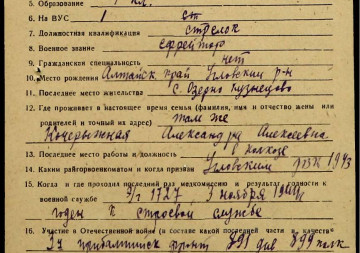 5. Образование 1 кл.
6. На ВУС 1 ст
7. Должностная квалификация стрелок
8. Военное звание ефрейтор
9. Гражданская специальность нет
10. Место рождения Алтайск край Угловский р-н
11. Последнее место жительства с. Озерно Кузнецово
12. Где проживает в настоящее время семья (фамилия, имя и отчество жены или
родителей и точный их адрес) там же
Кочерыжная Александра Алексеевна
13. Последнее место работы и должность колхоз
14. Каким райгорвоенкоматом и когда призван Угловским РВК 1943
15. Когда и где проходил последний раз медкомиссию и результат годности к
военной службе э/г 1727 9 ноября
годен к строевой службе
16. Участие в Отечественной войне (в составе какой последней части и в качестве
кого) прибалтийск фронт 891 див 899 полк